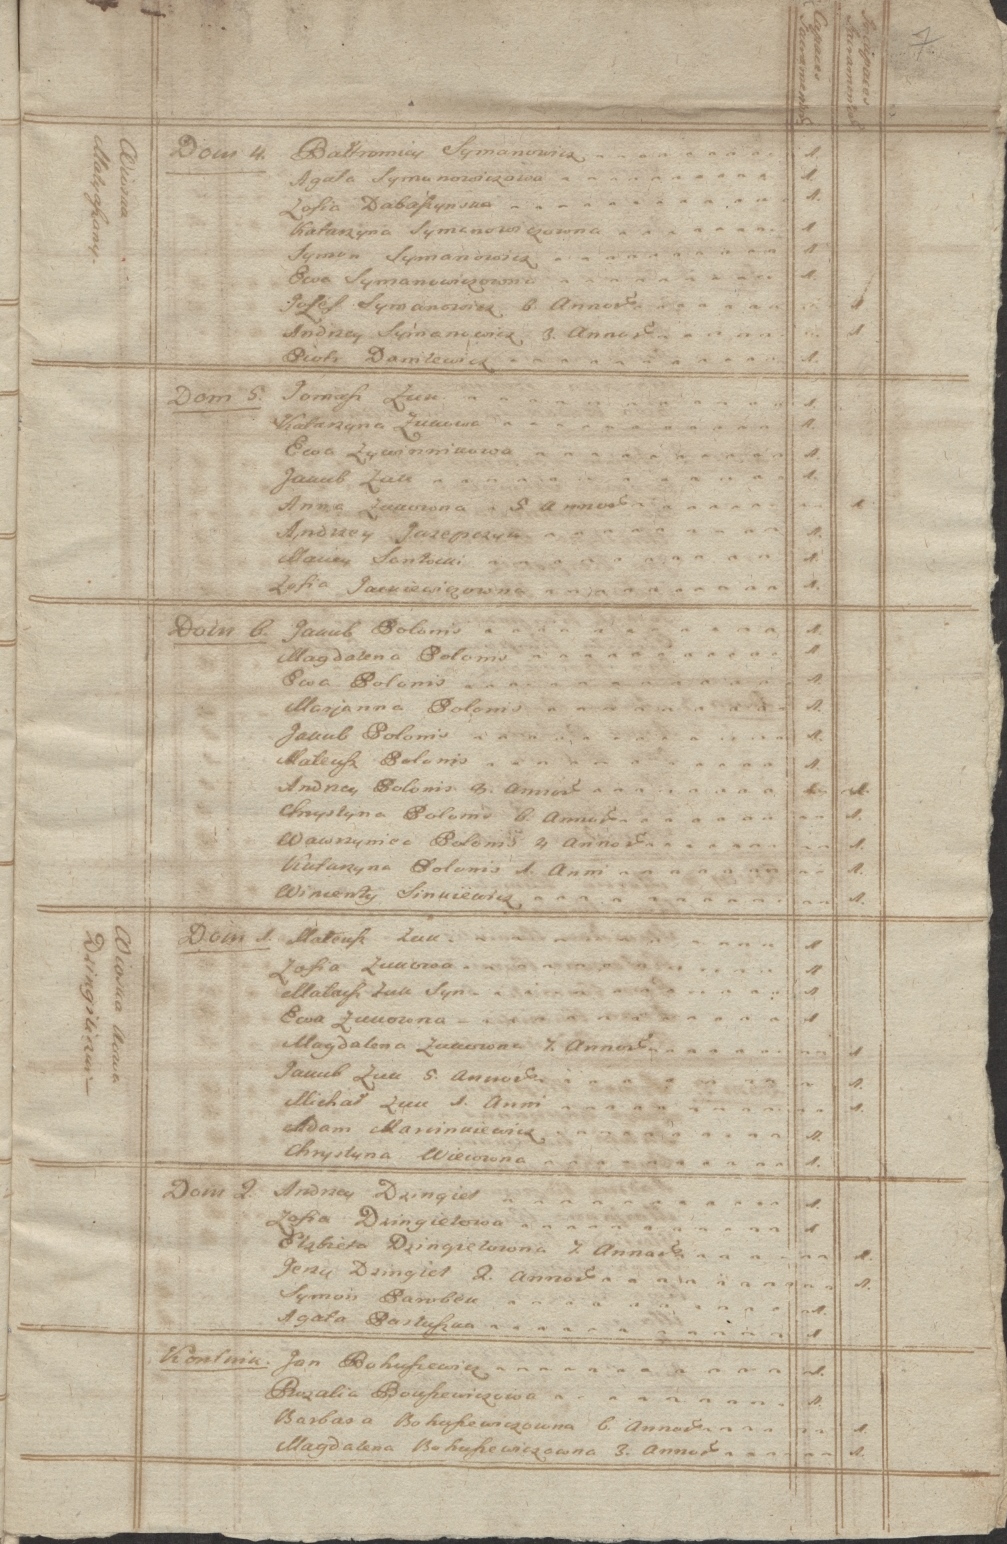 7.
Capaces Sacramentor
Incapaces Sacramentor
Wiosna
Dom 4. Bałtromiey Symanowicz 1.
Agata Symanowiczowa 1.
Zofia Dabaszynska 1.
Katarzyna Symanowiczowna 1
Symon Symanowicz 1
Ewa Symanowiczowna 1.
Jozef Symanowicz 6. Annor 1
Andrzey Symanowicz 3. Annor 1
Piotr Daniłewicz 1.
Dom 5. Tomasz Zuk 1.
Katarzyna Zukowa 1.
Ewa 1.
Jakub Zuk 1.
Anna Zukowna 5 Annor 1
Andrzey Jozepczyk 1.
Maciey 1.
Zofia Jackiewiczowna 1.
Dom 6. Jakub Polonis 1.
Magdalena Polonis 1
Ewa Polonis 1.
Marjanna Polonis 1.
Jakub Polonis 1.
Mateusz Polonis 1.
Andrzey Polonis Annor 1.
Chrystyna Polonis 6. Annor 1.
Wawrzyniec Polonis 4 Annor 1.
Katarzyna Polonis 1. Anni 1.
Wincenty Sinkiewicz 1.
Wioska Nowa
Dom 1. Mateusz Zuk 1
Zofia Zukowa 1
Zuk Syn 1
Ewa Zukowna 1
Magdalena Zukowna 7. Annor 1
Jakub Zuk 5. Annor 1.
Michał Zuk 1. Anni 1.
Adam Marcinkiewicz 1.
Chrystyna 1.
Dom 2. Andrzey Dzingieł 1
Zofia Dzingiełowa 1
Elzbieta Dzingiełowna 7. Annor 1.
Jerzy Dzingieł 2. Annor 1.
Symon Parobek 1.
Agata Pastuszka 1
Kontnik. Jan Bohuszewicz 1.
Rozalia Bouszewiczowa 1.
Barbara Bohuszewiczowna 6. Annor 1
Magdalena Bohuszewiczowna 3. Annor 1.